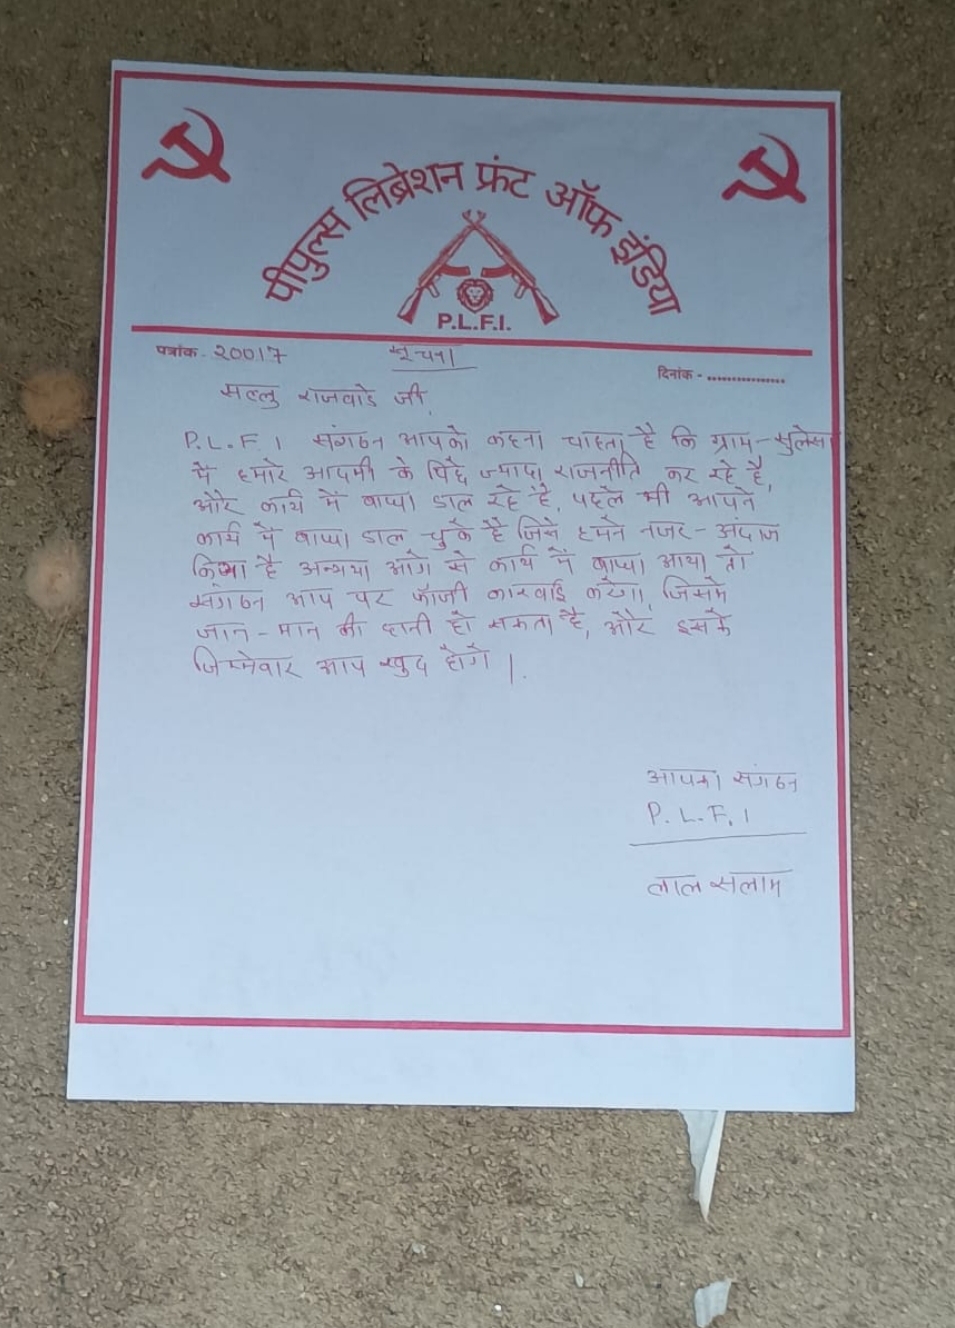 पीपुल्स लिब्रेशन फ्रंट ऑफ इंडिया
P.L.F.I.
पत्रांक - 20017
सूचना
दिनांक - ................
सल्लु राजवाडे जी,
P.L.F.I संगठन आपको कहना चाहता है कि ग्राम-सुलेसा
मे हमारे आदमी के पिछे ज्यादा राजनीति कर रहे है,
और कार्य में बाधा डाल रहे है, पहले भी आपने
कार्य में बाधा डाल चुके है जिसे हमने नजर-अंदाज
किया है अन्यथा आगे से कार्य में बाधा आया तो
संगठन आप पर फौजी कारवाई करेगा, जिसमे
जान-मान की हानी हो सकता है, और इसके
जिम्मेवार आप खुद होगे |.
आपका संगठन
P.L.F.I
लाल सलाम